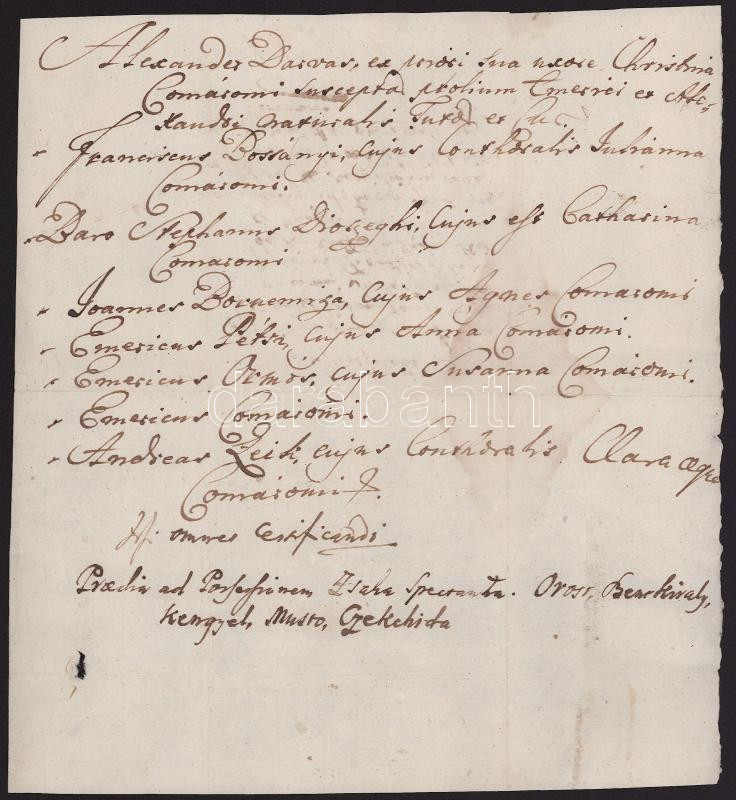 Alexander Darvas, ex priori sua uxore Christina
Comáromi susceptar prolium Emerici et Ale-
xandri naturalis Tutor et
Franciscus Bossányi, cujus Conthoralis Julianna
Comáromi.
Baro Stephanus Dioszeghi, cujus est Catharina
Comaromi
Joannes Bornemisza, cujus Agnes Comaromi
Emericus Pétri, cujus Anna Comáromi.
Emericus Ormós, cujus Susanna Comáromi.
Emericus Comaromi.
Andreas Zeik, cujus Conthoralis Clara æque
Comaromi
omnes Certificandi
Prædia ad Possessionem Zsaka spectantia. Orosi, Benekiraly,
Kengyel, Musto, Czekehida
darabanth